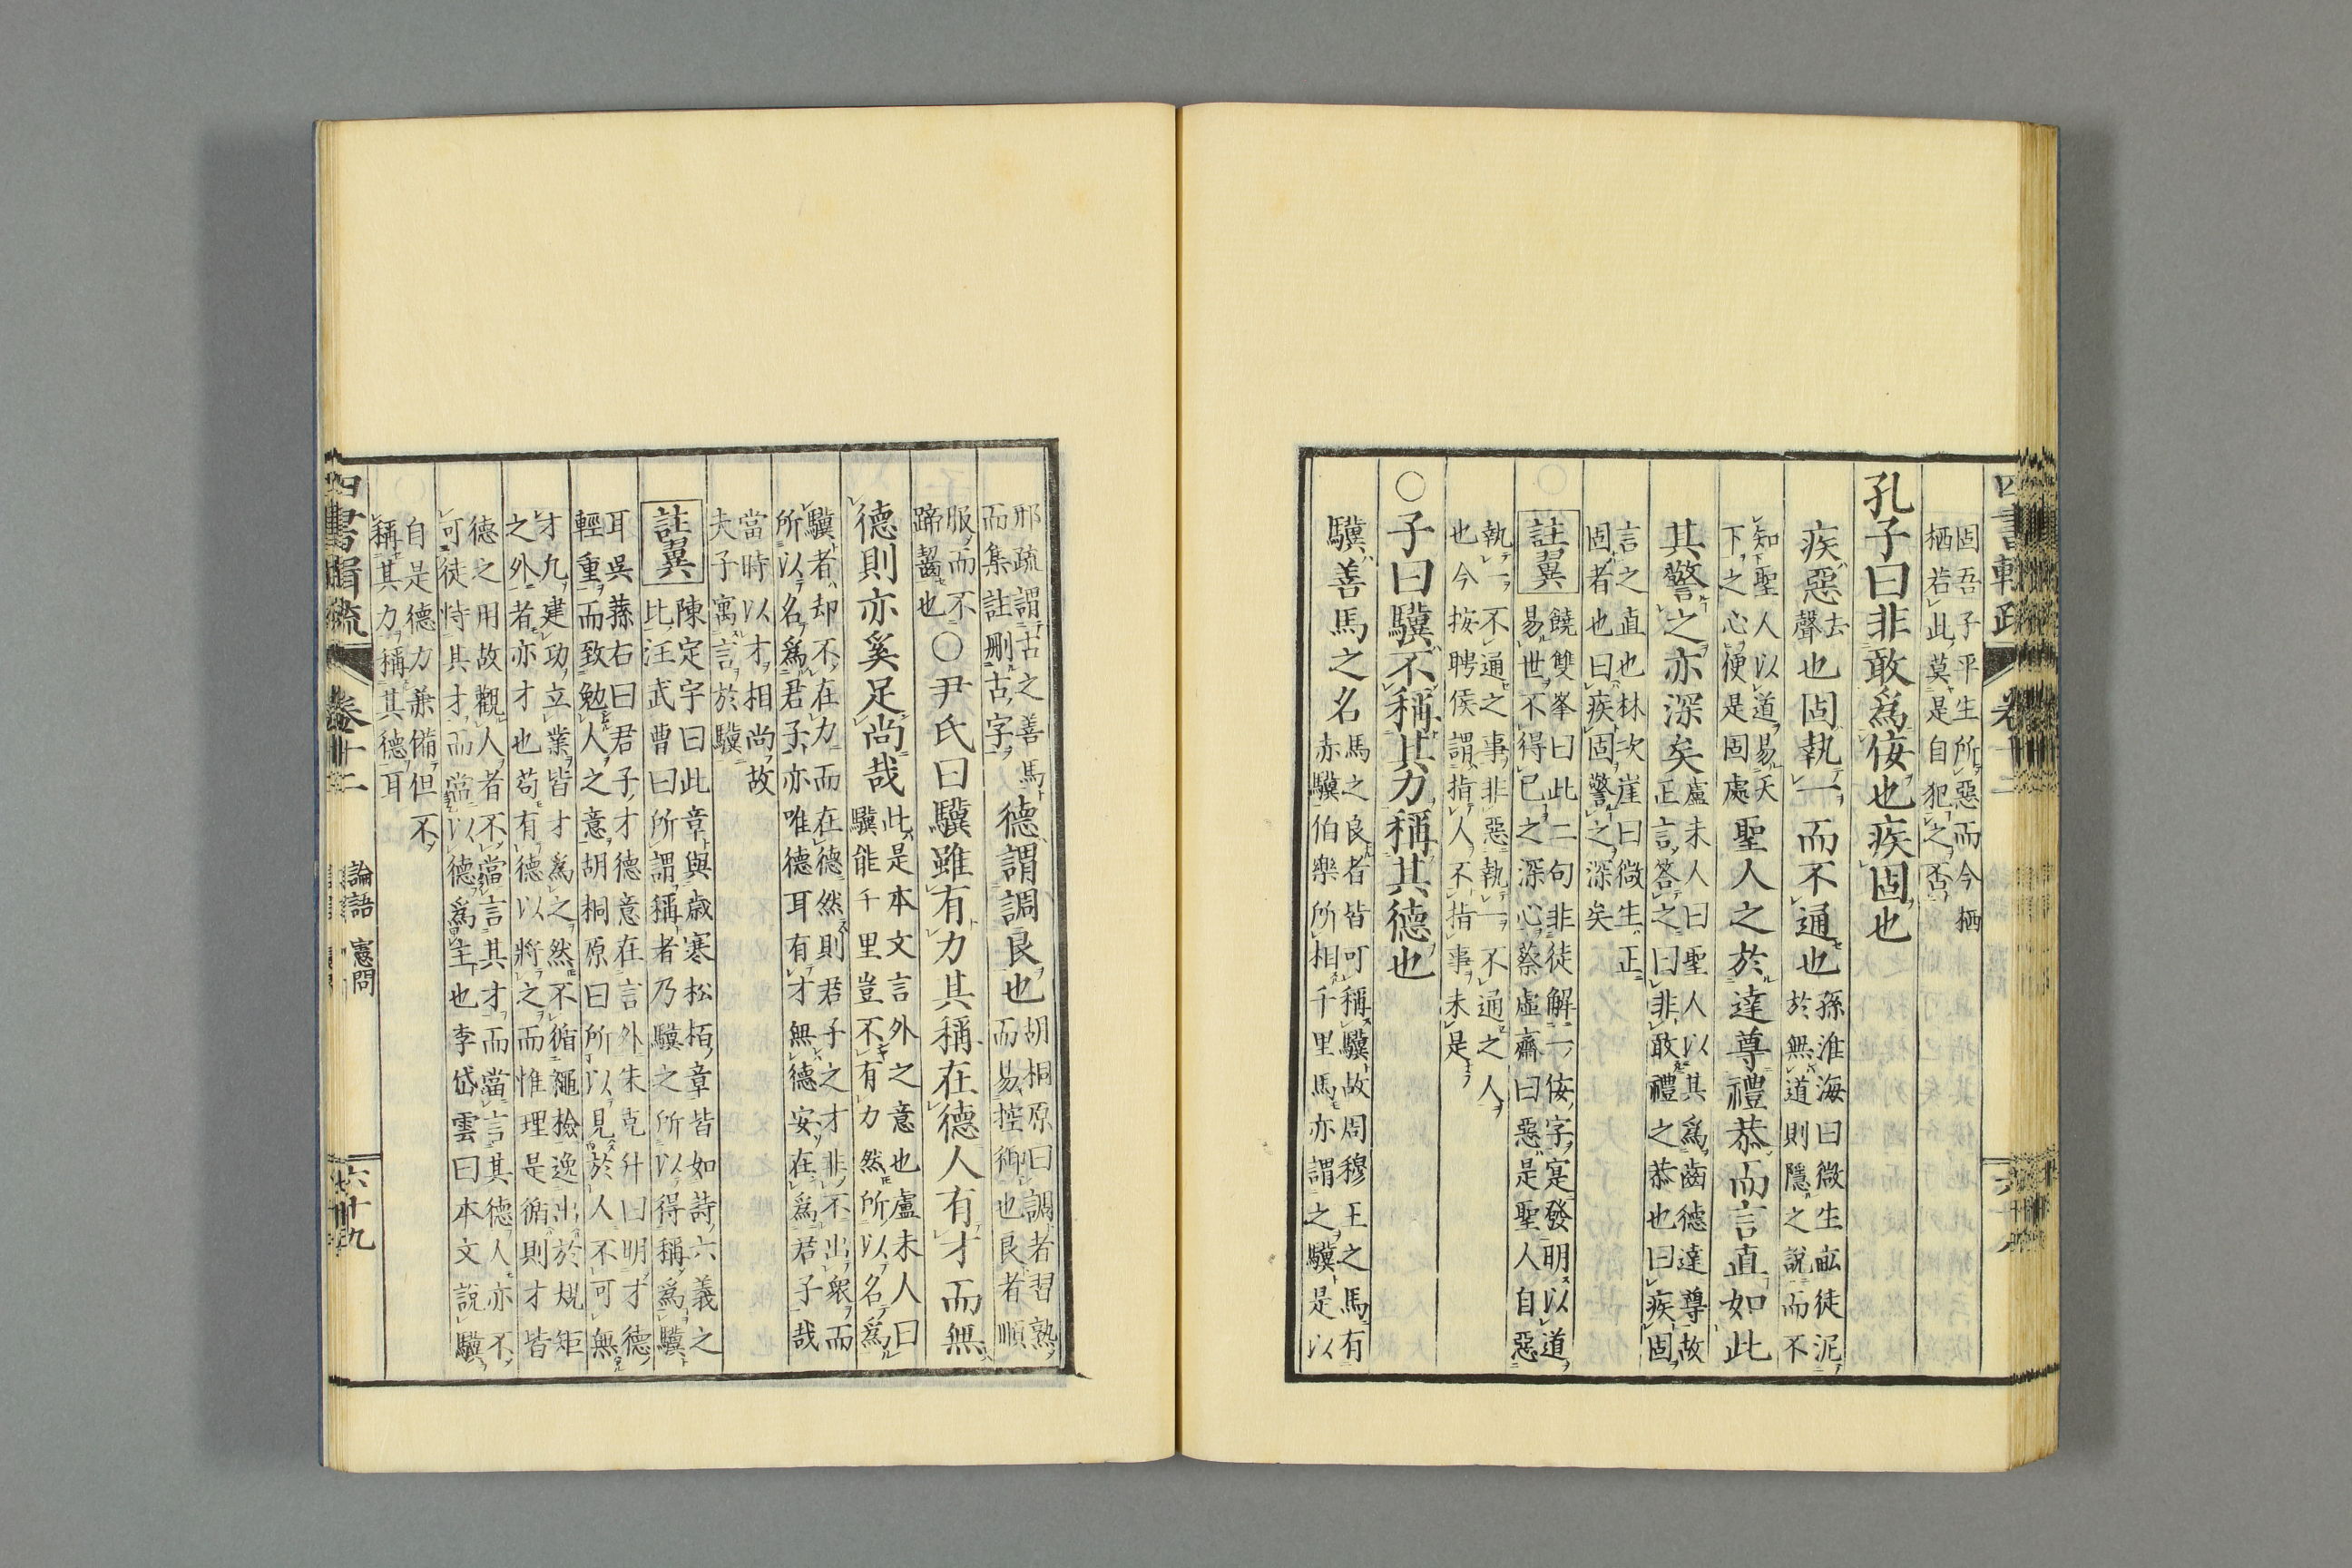 固吾子平生所惡而今栖
栖若此莫是自犯之否
孔子曰非敢爲侫也疾固也
疾惡
去
聲
也固執一而不通也
孫淮海曰微生畝徒泥
於無道則隱之說而不
知聖人以道易天
下之心便是固處
聖人之於達尊禮恭而言直如此
其警之亦深矣
盧未人曰聖人以其爲齒德達尊故
正言答之曰非敢禮之恭也曰疾固
言之直也林次崖曰微生正
固者也曰疾固警之深矣
註翼
饒雙峯曰此二句非徒解一侫字寔發明以道
易世不得已之深心蔡虛齋曰惡是聖人自惡
執一不通之事非惡執一不通之人
也今按聘侯謂指人不指事未是
○子曰驥不稱其力稱其德也
驥善馬之名
馬之良者皆可稱驥故周穆王之馬有
赤驥伯樂所相千里馬亦謂之驥是以
邢疏謂古之善馬
而集註刪古字
德謂調良也
胡桐原曰調者習熟
而易控御也良者順
服而不
蹄齧也
○尹氏曰驥雖有力其稱在德人有才而無
德則亦奚足尚哉
此是本文言外之意也盧未人曰
驥能千里豈不有力然所以名爲
驥者却不在力而在德然則君子之才非不出衆而
所以名爲君子亦唯德耳有才無德安在爲君子哉
當時以才相尚故
夫子寓言於驥
註翼
陳定宇曰此章與歲寒松栢章皆如詩六義之
比汪武曹曰所謂稱者乃驥之所以得稱爲驥
耳吳蓀右曰君子才德意在言外朱克升曰明才德
輕重而致勉人之意胡桐原曰所以見於人不可無
才九建功立業皆才爲之然不循繩檢逸出於規矩
之外者亦才也苟有德以將之而惟理是循則才皆
德之用故觀人者不當言其才而當言其德人亦不
可徒恃其才而當以德爲主也李岱雲曰本文說驥
自是德力兼備但不
稱其力稱其德耳
卷十二
論語 憲問
六十九